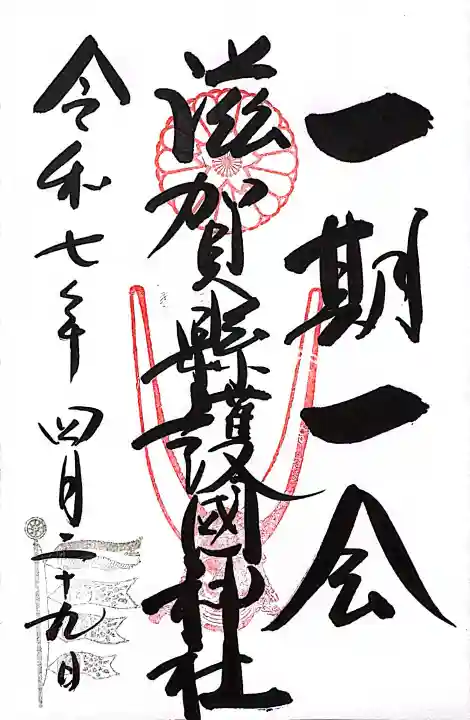 一期一会
滋賀縣護國神社
令和七年四月二十九日